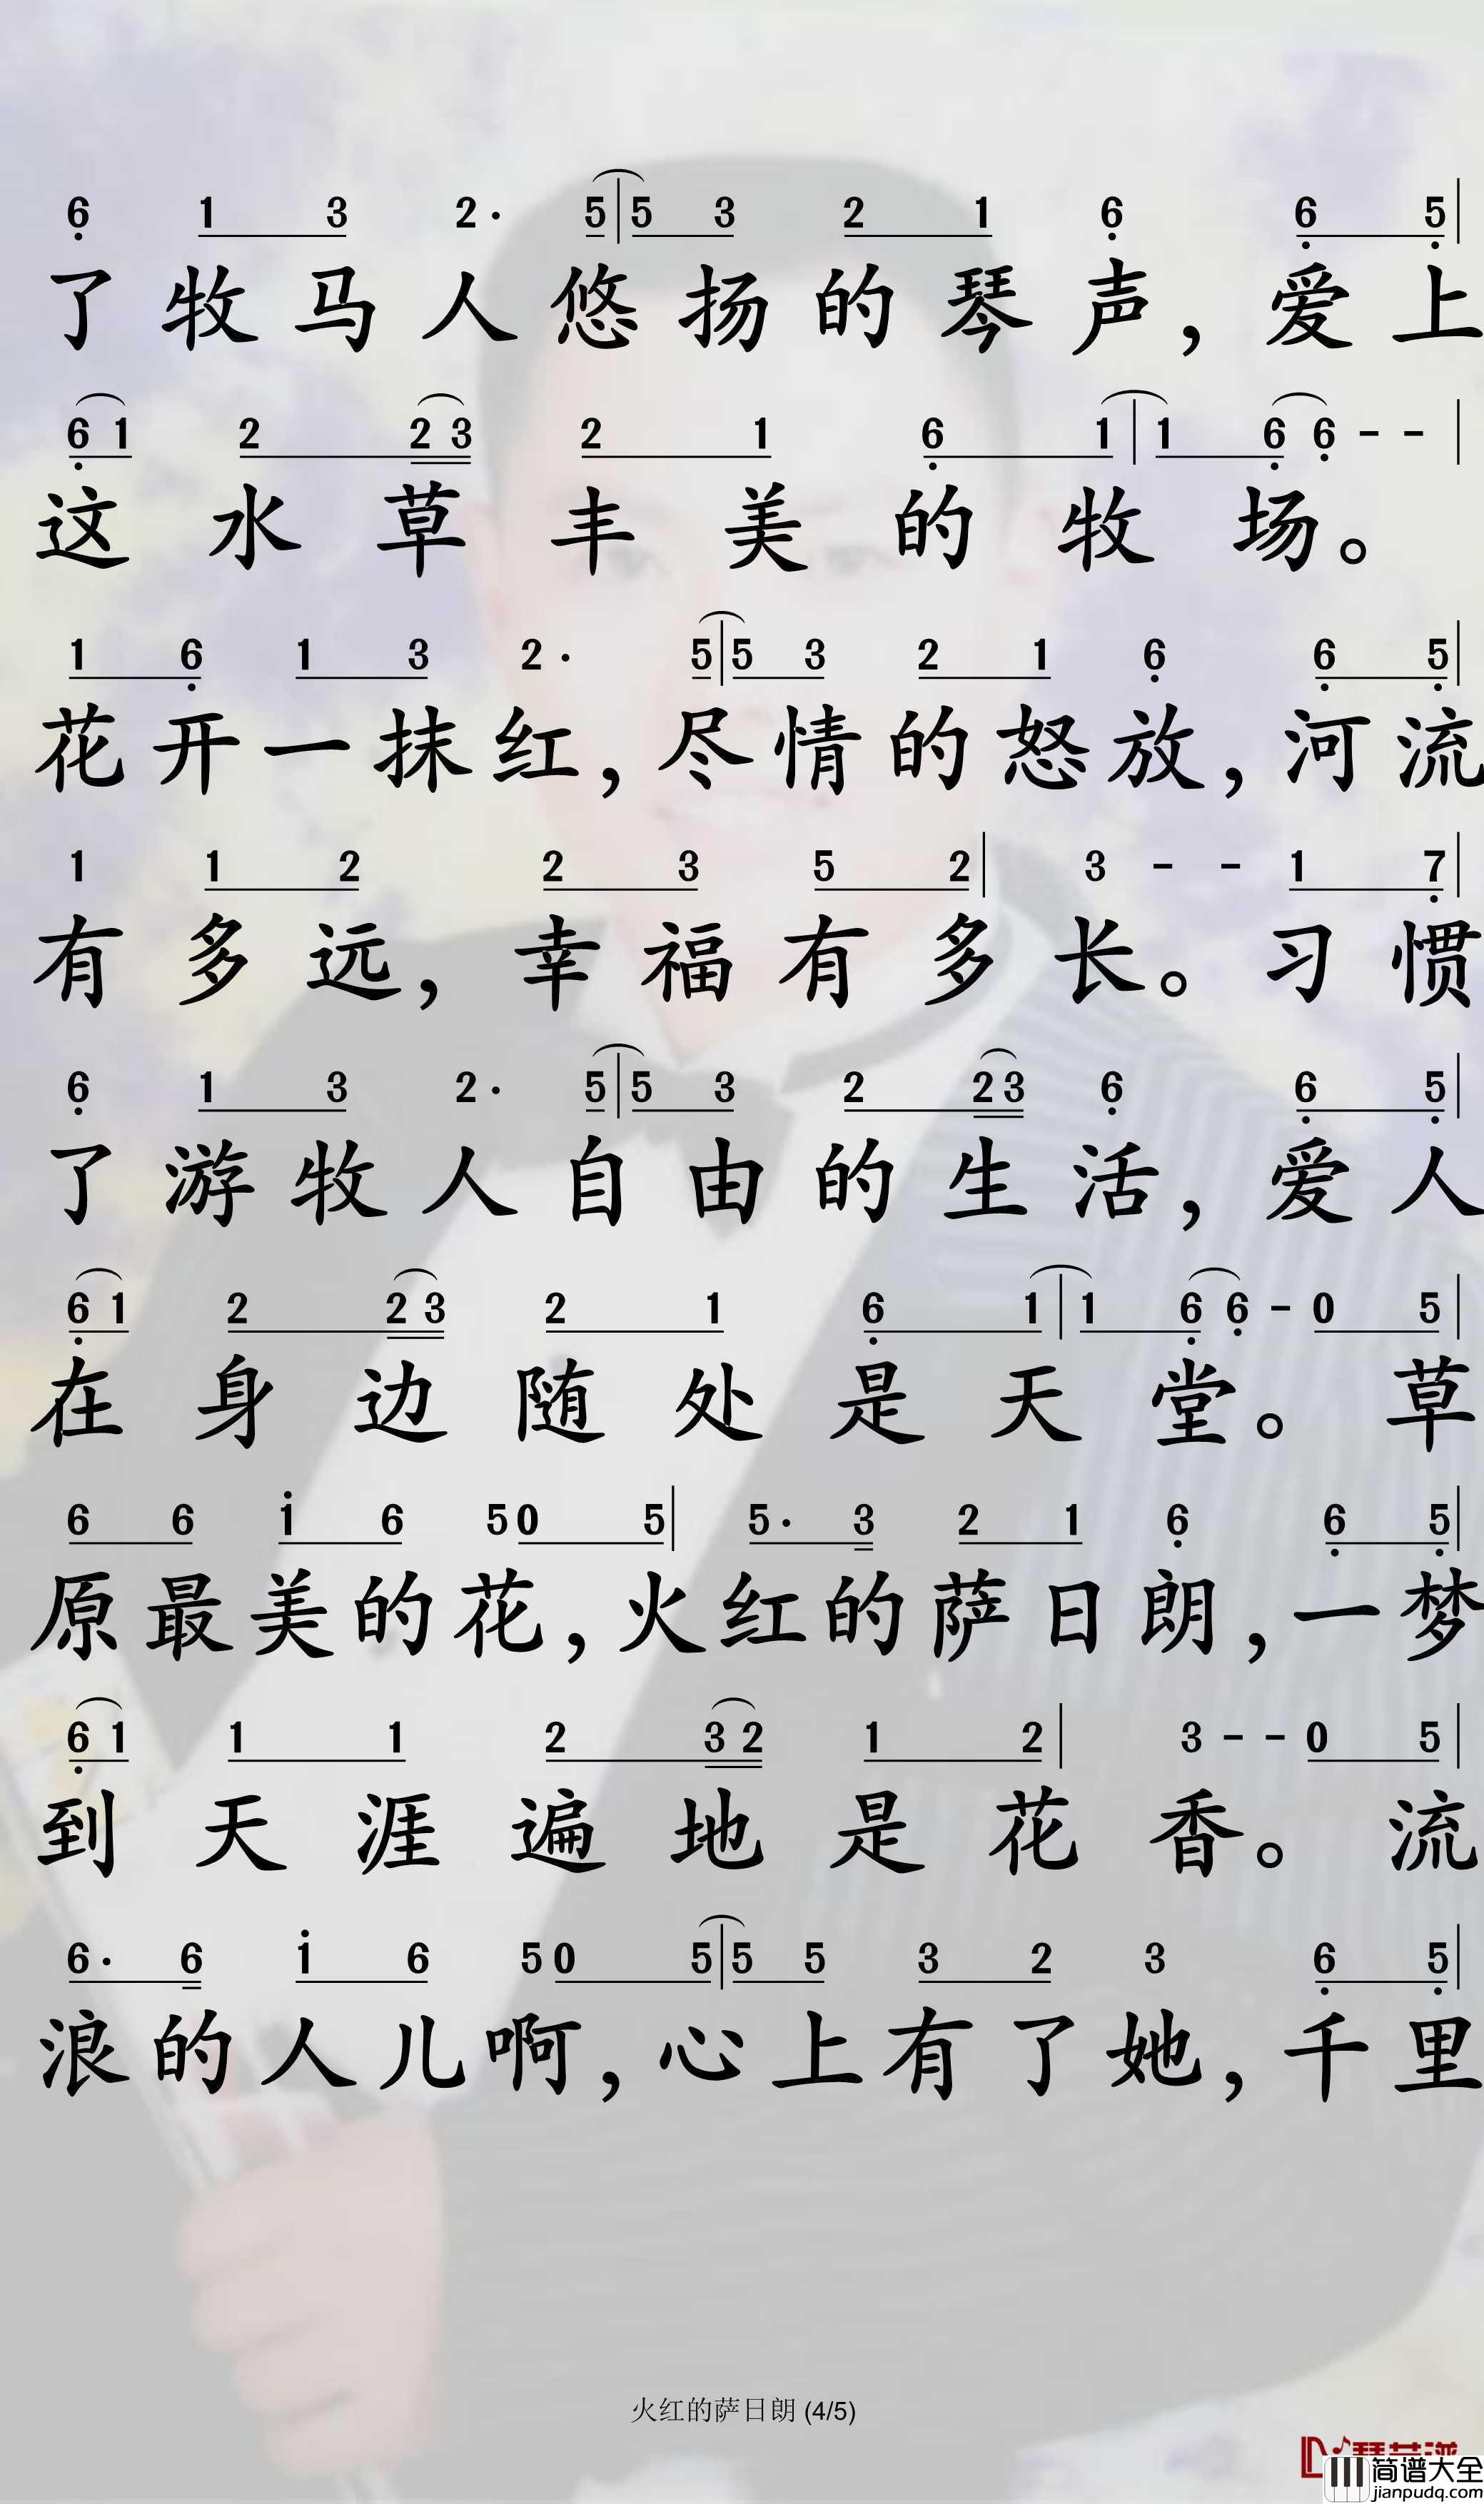 6 1 3 2· 5 5 3 2 1 6 6 5
了牧马人悠扬的琴声,爱上
6 1 2 2 3 2 1 6 1 1 6 6 - -
这水草丰美的牧场。
1 6 1 3 2· 5 5 3 2 1 6 6 5
花开一抹红,尽情的怒放,河流
1 1 2 2 3 5 2 3 - - 1 7
有多远,幸福有多长。习惯
6 1 3 2· 5 5 3 2 2 3 6 6 5
了游牧人自由的生活,爱人
6 1 2 2 3 2 1 6 1 1 6 6 - 0 5
在身边随处是天堂。草
6 6 1 6 5 0 5 5· 3 2 1 6 6 5
原最美的花,火红的萨日朗,一梦
6 1 1 1 2 3 2 1 2 3 - - 0 5
到天涯遍地是花香。流
6· 6 1 6 5 0 5 5 5 3 2 3 6 5
浪的人儿啊,心上有了她,千里
火红的萨日朗 (4/5)
简谱大全
jianpudq.com